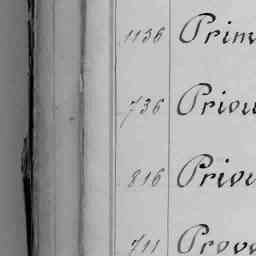 1136 Prim
736 Priou
816 Priou
711 Prov